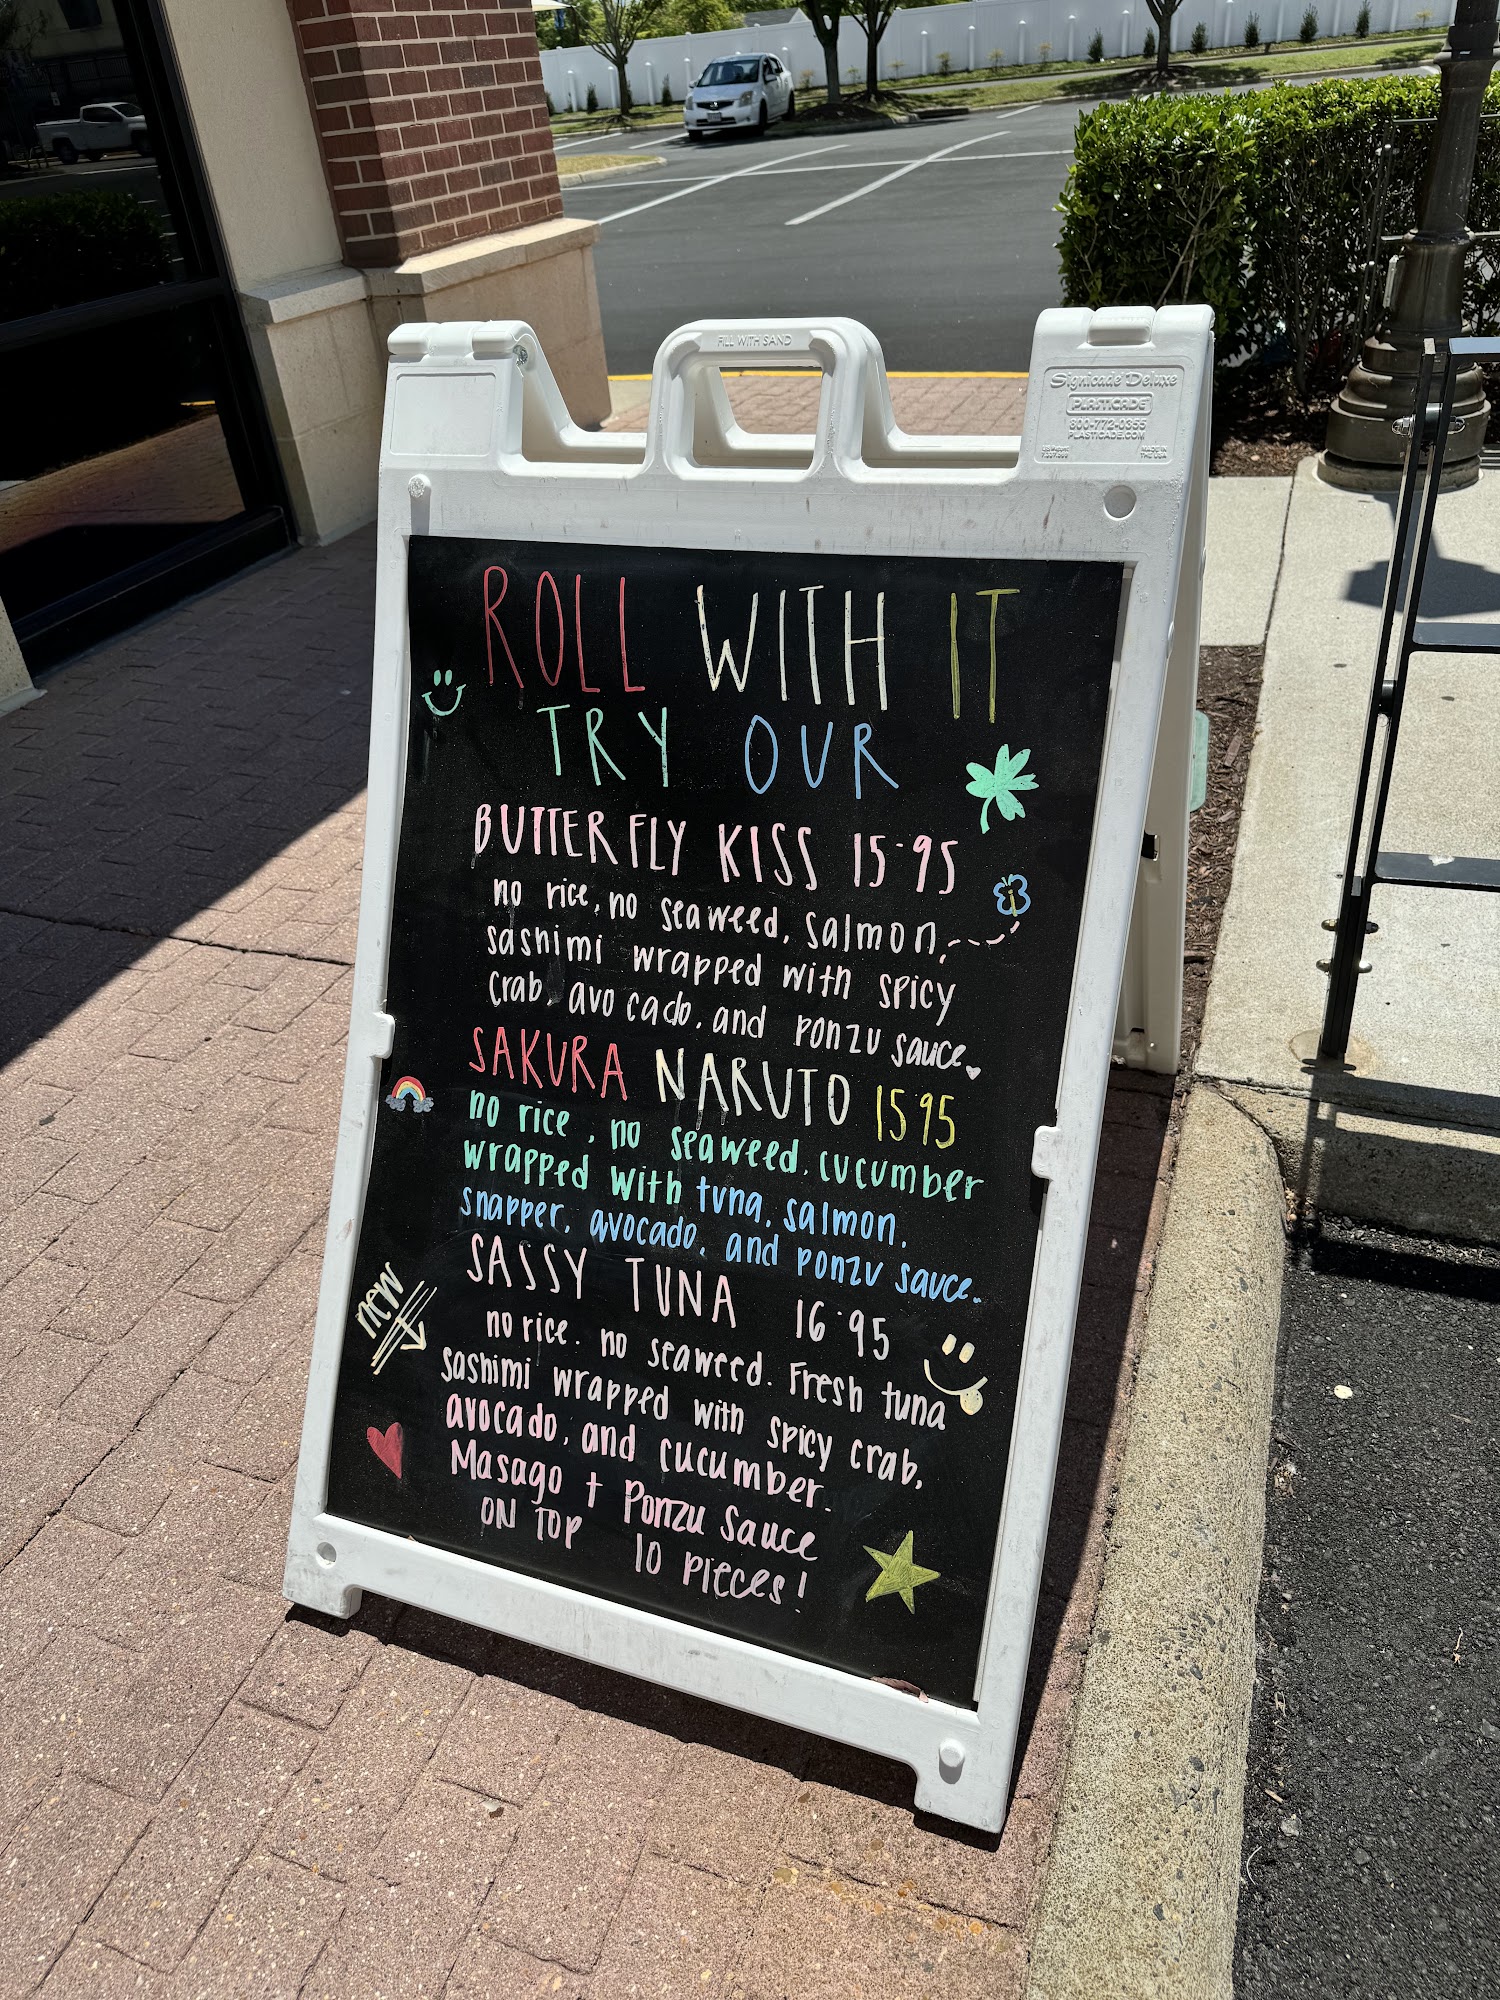 FILL WITH SAND
Signicade Deluxe
PLASTICADE
800-772-0355
PLASTICADE.COM
MADE IN
THE USA
ROLL WITH IT
TRY OUR
BUTTERFLY KISS 15.95
no rice, no seaweed, salmon,
sashimi wrapped with spicy
crab, avocado, and ponzu sauce.
SAKURA NARUTO 15 95
no rice, no seaweed, cucumber
wrapped with tuna, salmon,
snapper, avocado, and ponzu sauce.
SASSY TUNA 16.95
new
no rice. no seaweed. Fresh tuna
sashimi wrapped with spicy crab,
avocado, and cucumber.
Masago + Ponzu Sauce
ON TOP 10 PIECES!